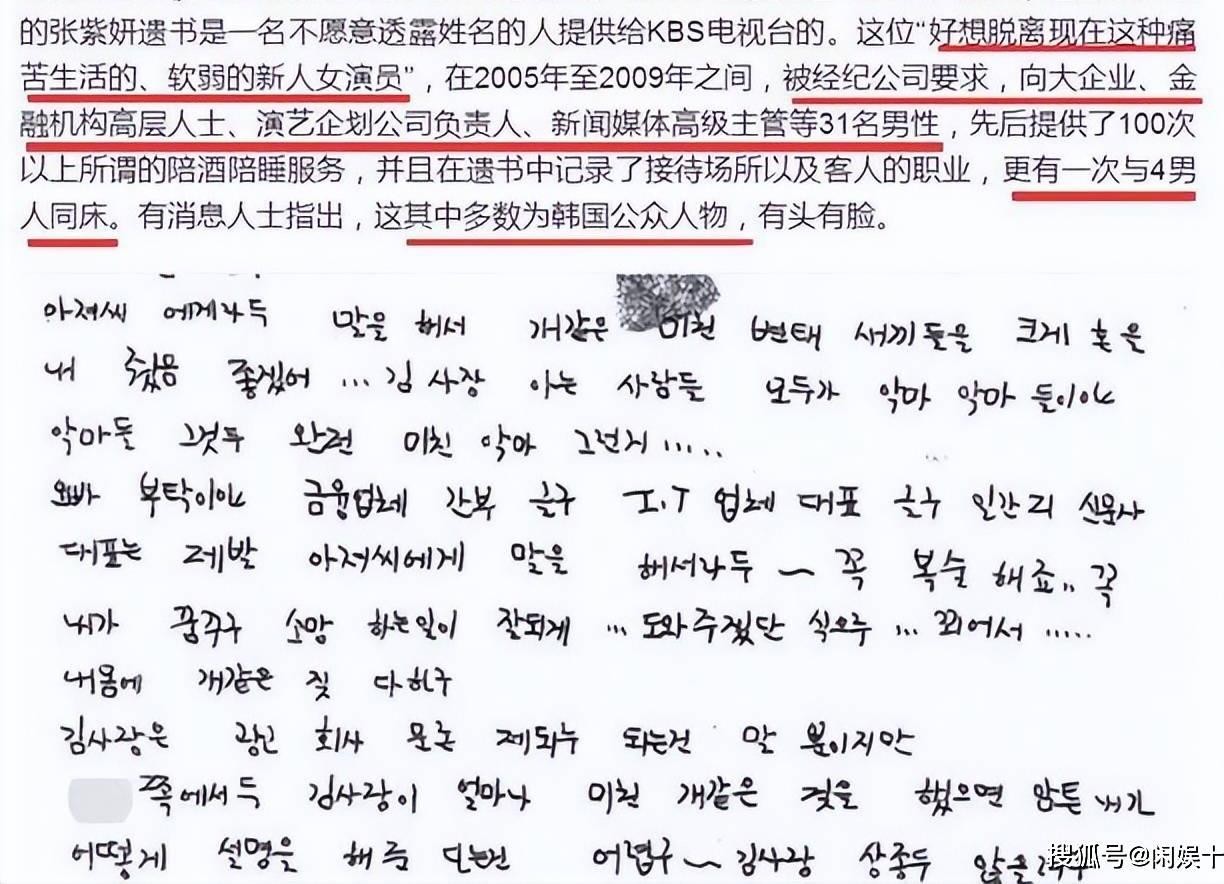 的张紫妍遗书是一名不愿意透露姓名的人提供给KBS电视台的。这位“好想脱离现在这种痛
苦生活的、软弱的新人女演员”，在2005年至2009年之间，被经纪公司要求，向大企业、金
融机构高层人士、演艺企划公司负责人、新闻媒体高级主管等31名男性，先后提供了100次
以上所谓的陪酒陪睡服务，并且在遗书中记录了接待场所以及客人的职业，更有一次与4男
人同床。有消息人士指出，这其中多数为韩国公众人物，有头有脸。
아저씨 에게라두 말을 해서 개같은 미친 변태 새끼들을 크게 혼을
내 줬음 좋겠어 ... 김 사장 아는 사람들 모두가 악마 악마 들이야
악마들 그것두 완전 미친 악마 그런거 .....
오빠 부탁이야 금융업체 간부 글구 I.T 업체 대표 글구 일간지 신문사
대표는 제발 아저씨에게 말을 해서라두 ~ 꼭 복수 해죠.. 꼭
내가 꿈꾸구 소망 하는일이 잘되게 ... 도와주겠단 식으루 ... 꾀어서 .....
내몸에 개같은 짓 다하구
김사장은 광고 회사 문론 제의두 되는건 말 뿐이지만
쪽에서두 김사장이 얼마나 미친 개같은 짓을 했으면 암튼 내가
어떻게 설명을 해줌 되는건 어렵구 ~ 김사장 상종두
搜狐号@闲娱十